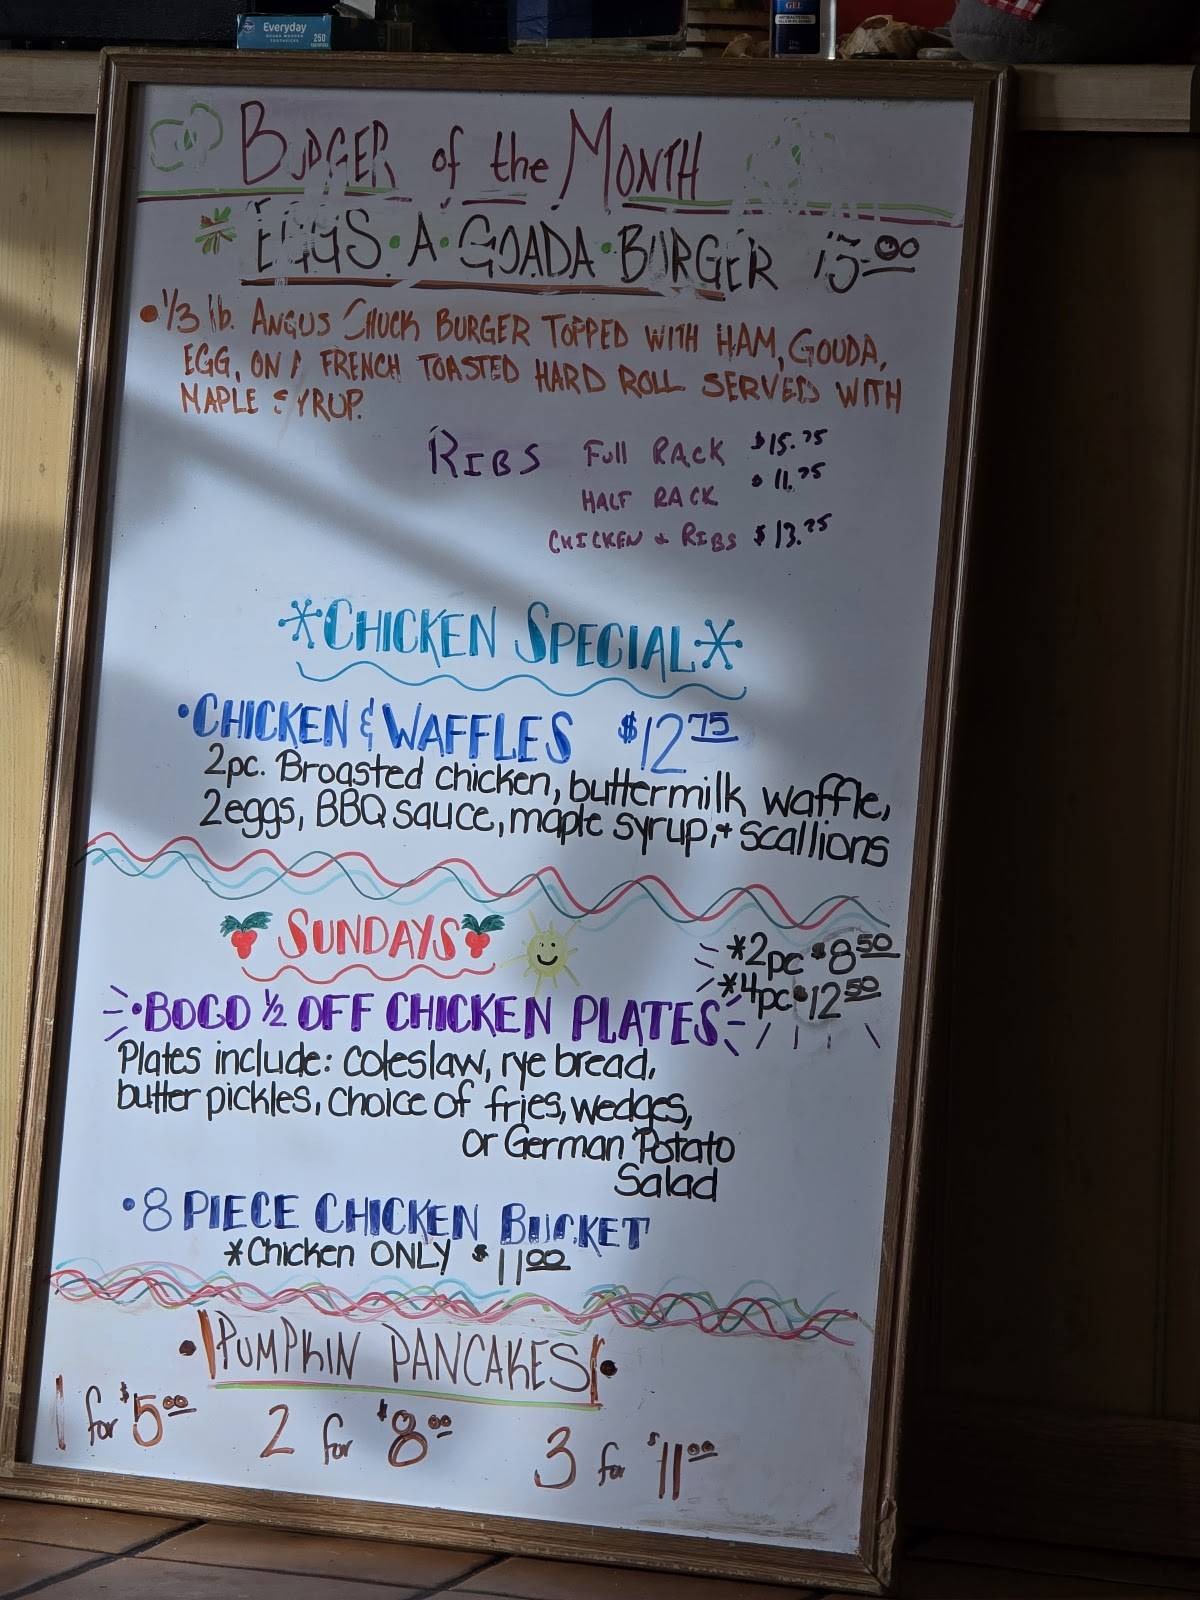 Everyday
250
GEL
BURGER of the MONTH
EGGS·A·GOADA·BURGER 15.00
• 1/3 lb. ANGUS CHUCK BURGER TOPPED WITH HAM, GOUDA,
EGG, ON A FRENCH TOASTED HARD ROLL SERVED WITH
MAPLE SYRUP.
RIBS FULL RACK $15.75
HALF RACK $11.75
CHICKEN & RIBS $13.75
*CHICKEN SPECIAL*
• CHICKEN & WAFFLES $12 75
2pc. Broasted chicken, buttermilk waffle,
2 eggs, BBQ sauce, maple syrup, + scallions
SUNDAYS
*2pc $8 50
*4pc $12 50
• BOGO 1/2 OFF CHICKEN PLATES
Plates include: coleslaw, rye bread,
butter pickles, choice of fries, wedges,
or German Potato
Salad
• 8 PIECE CHICKEN BUCKET
*Chicken ONLY $11 00
• PUMPKIN PANCAKES •
1 for $5 00 2 for $8 00 3 for $11 00